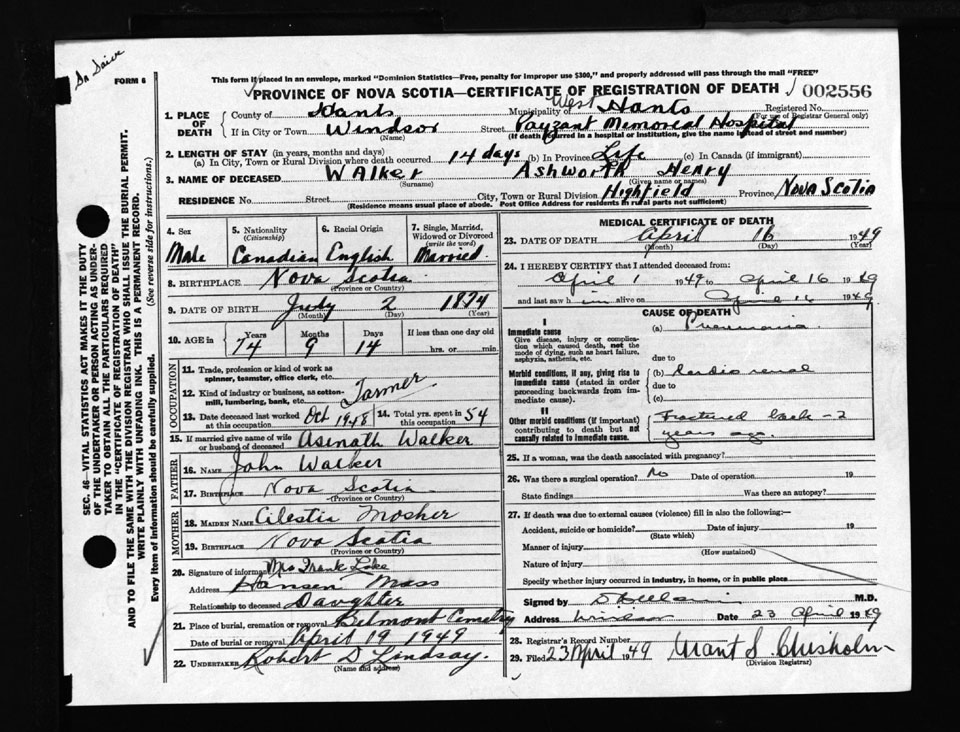 FORM 6
This form if placed in an envelope, marked "Dominion Statistics—Free, penalty for improper use $300," and properly addressed will pass through the mail "FREE"
PROVINCE OF NOVA SCOTIA—CERTIFICATE OF REGISTRATION OF DEATH 002556
1. PLACE OF DEATH
County of Hants Municipality of West Hants Registered No.
(For use of Registrar General only)
If in City or Town Windsor Street Payzant Memorial Hospital
(If death occurred in a hospital or institution, give the name instead of street and number)
2. LENGTH OF STAY (in years, months and days)
(a) In City, Town or Rural Division where death occurred 14 days (b) In Province Life (c) In Canada (if immigrant)
3. NAME OF DECEASED Walker Ashworth Henry
(Surname) (Given name or names)
RESIDENCE No. Street City, Town or Rural Division Highfield Province Nova Scotia
(Residence means usual place of abode. Post Office Address for residents in rural parts not sufficient)
4. Sex Male
5. Nationality (Citizenship) Canadian
6. Racial Origin English
7. Single, Married, Widowed or Divorced (write the word) Married
8. BIRTHPLACE Nova Scotia
(Province or Country)
9. DATE OF BIRTH July 2 1874
(Month) (Day) (Year)
10. AGE in Years Months Days If less than one day old
74 9 14 hrs. or min.
OCCUPATION
11. Trade, profession or kind of work as spinner, teamster, office clerk, etc.
12. Kind of industry or business, as cotton-mill, lumbering, bank, etc.
13. Date deceased last worked at this occupation Oct 1948
14. Total yrs. spent in this occupation 54
15. If married give name of wife or husband of deceased Asenath Walker
FATHER
16. Name John Walker
17. Birthplace Nova Scotia
(Province or Country)
MOTHER
18. MAIDEN NAME Celestia Mosher
19. BIRTHPLACE Nova Scotia
(Province or Country)
20. Signature of informant Mrs Frank Lake
Address Hansen Mass
Relationship to deceased Daughter
21. Place of burial, cremation or removal Belmont Cemetry
Date of burial or removal April 19 1949
22. UNDERTAKER Robert D Lindsay.
(Name and address)
MEDICAL CERTIFICATE OF DEATH
23. DATE OF DEATH April 16 1949
(Month) (Day) (Year)
24. I HEREBY CERTIFY that I attended deceased from:
April 1 1949 to April 16 1949
and last saw him alive on April 16 1949
CAUSE OF DEATH
I
Immediate cause
Give disease, injury or complication which caused death, not the mode of dying, such as heart failure, asphyxia, asthenia, etc.
(a) Pneumonia
due to
Morbid conditions, if any, giving rise to immediate cause (stated in order proceeding backwards from immediate cause).
(b) Cardio renal
due to
(c)
II
Other morbid conditions (if important) contributing to death but not causally related to immediate cause.
Fractured back - 2
years ago.
25. If a woman, was the death associated with pregnancy?
26. Was there a surgical operation? No Date of operation 19
State findings Was there an autopsy?
27. If death was due to external causes (violence) fill in also the following:-
Accident, suicide or homicide? Date of injury 19
(State which)
Manner of injury
(How sustained)
Nature of injury
Specify whether injury occurred in industry, in home, or in public place
Signed by M.D.
Address Windsor Date 23 April 1949
28. Registrar's Record Number
29. Filed 23 April 1949 Grant S. Chisholm
(Division Registrar)
SEC. 46—VITAL STATISTICS ACT MAKES IT THE DUTY
OF THE UNDERTAKER OR PERSON ACTING AS UNDERTAKER TO OBTAIN ALL THE PARTICULARS REQUIRED
IN THE "CERTIFICATE OF REGISTRATION OF DEATH"
AND TO FILE THE SAME WITH THE DIVISION REGISTRAR WHO SHALL ISSUE THE BURIAL PERMIT.
WRITE PLAINLY WITH UNFADING INK. THIS IS A PERMANENT RECORD.
Every item of information should be carefully supplied. (See reverse side for instructions.)